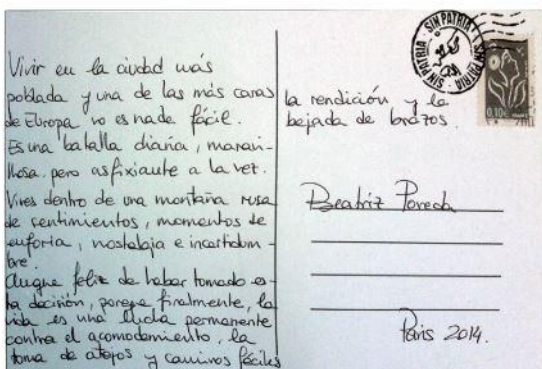 Vivir en la ciudad más
poblada y una de las más caras
de Europa no es nada fácil.
Es una batalla diaria, maravi-
llosa pero asfixiante a la vez.
Vives dentro de una montaña rusa
de sentimientos, momentos de
euforia, nostalgia e incertidum-
bre.
Aunque feliz de haber tomado es-
ta decisión, porque finalmente, la
vida es una lucha permanente
contra el acomodamiento, la
toma de atajos y caminos fáciles
la rendición y la
bajada de brazos.
SIN PATRIA SIN PATRIA SIN PATRIA
0,10€
Beatriz Poveda
París 2014.